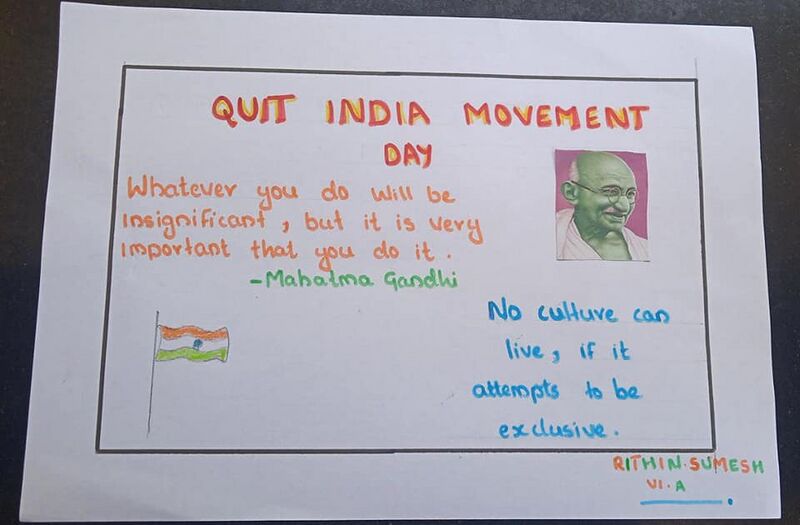 QUIT INDIA MOVEMENT
DAY
Whatever you do will be
insignificant, but it is very
important that you do it.
-Mahatma Gandhi
No culture can
live, if it
attempts to be
exclusive.
RITHIN.SUMESH
VI.A